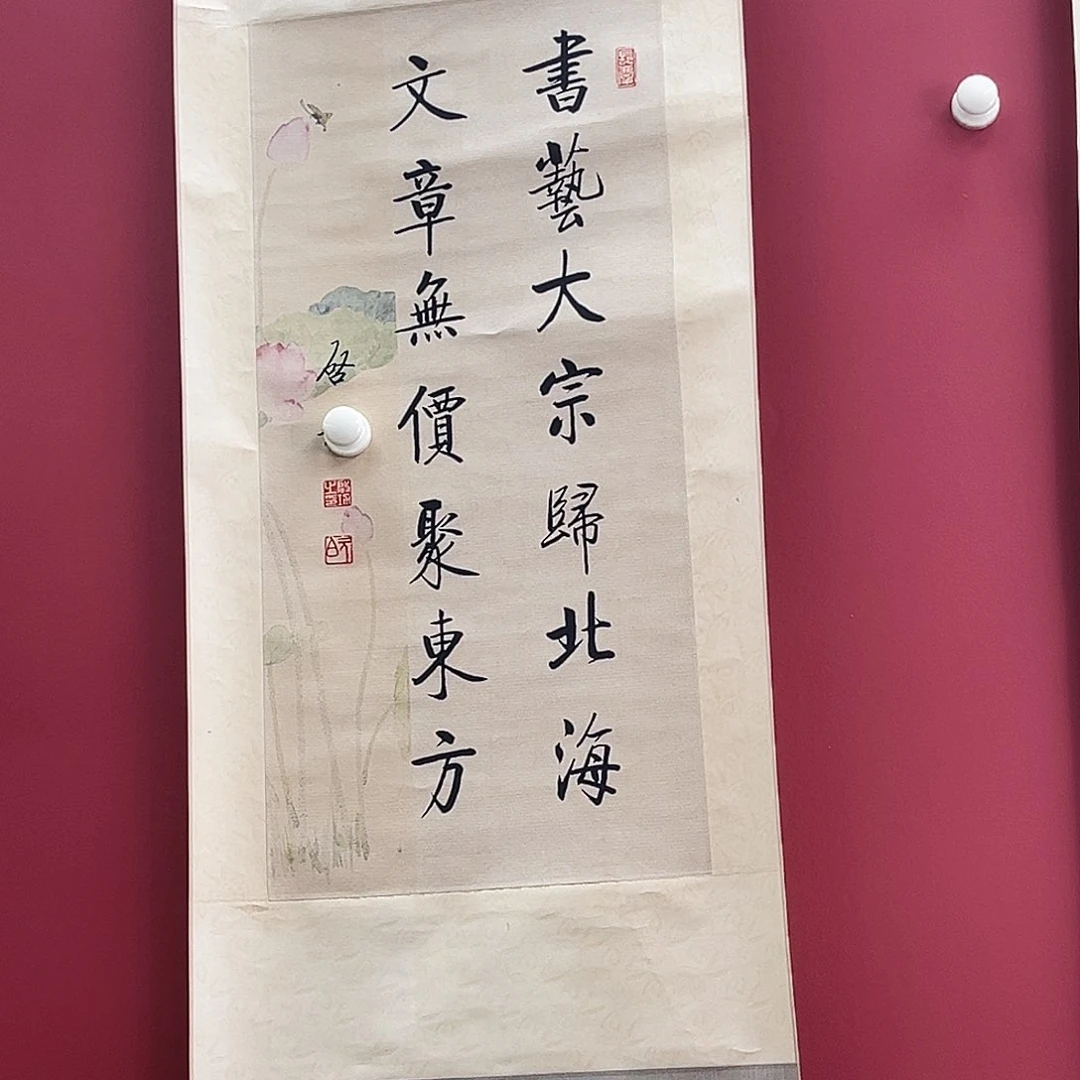 書藝大宗歸北海
文章無價聚東方
啓